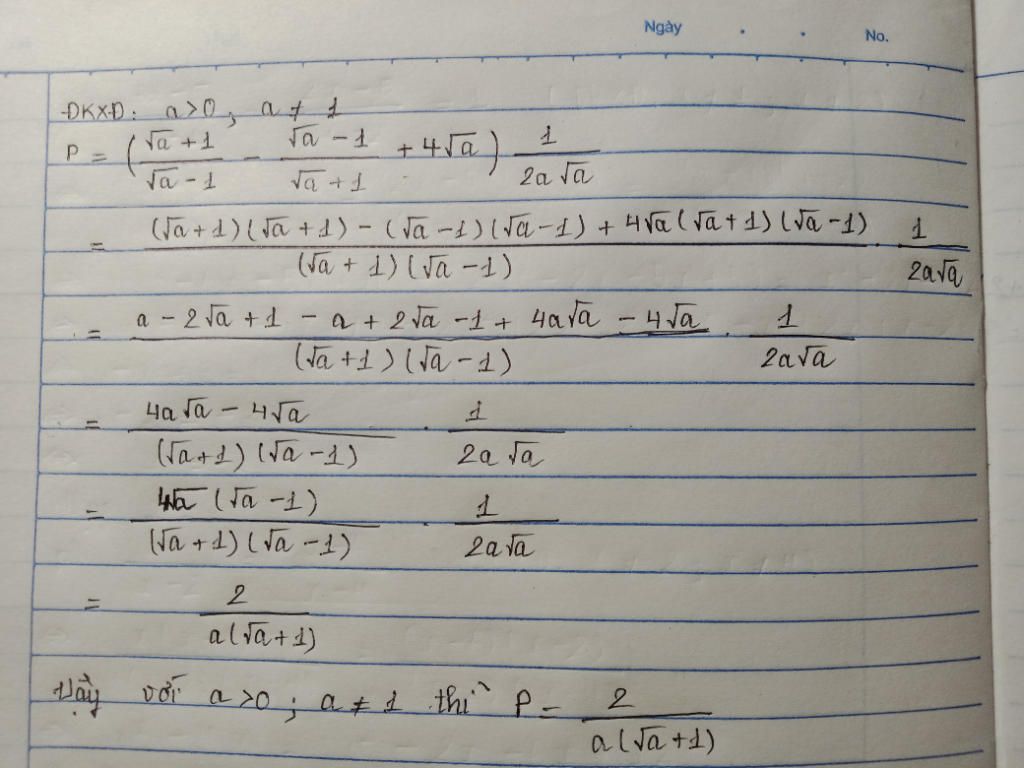 Ngày . . No.
ĐKXĐ: a>0, a ≠ 1
P = ((√a + 1)/(√a - 1) - (√a - 1)/(√a + 1) + 4√a) 1/(2a√a)
= ((√a + 1)(√a + 1) - (√a - 1)(√a - 1) + 4√a(√a + 1)(√a - 1))/((√a + 1)(√a - 1)) . 1/(2a√a)
= (a - 2√a + 1 - a + 2√a - 1 + 4a√a - 4√a)/((√a + 1)(√a - 1)) . 1/(2a√a)
= (4a√a - 4√a)/((√a + 1)(√a - 1)) . 1/(2a√a)
= (4√a (√a - 1))/((√a + 1)(√a - 1)) . 1/(2a√a)
= 2/(a(√a + 1))
Vậy với a>0; a ≠ 1 thì P = 2/(a(√a + 1))